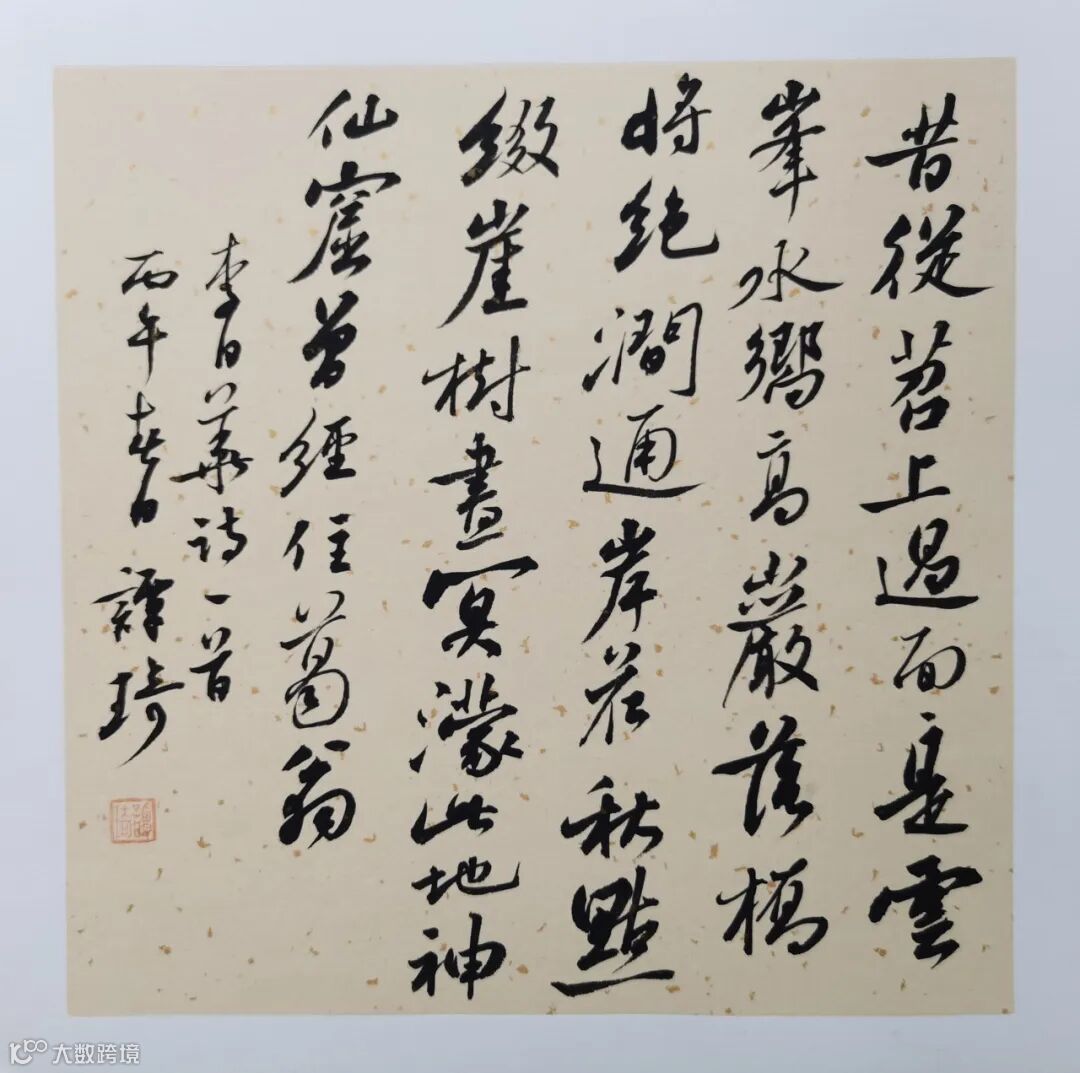 昔從苕上過面是雲
峯水響高巖落橋
將絕澗通岸花秋點
綴崖樹晝冥濛此地神
仙窟曾經住葛翁
李日華詩一首
丙午春日譚琦
大数跨境